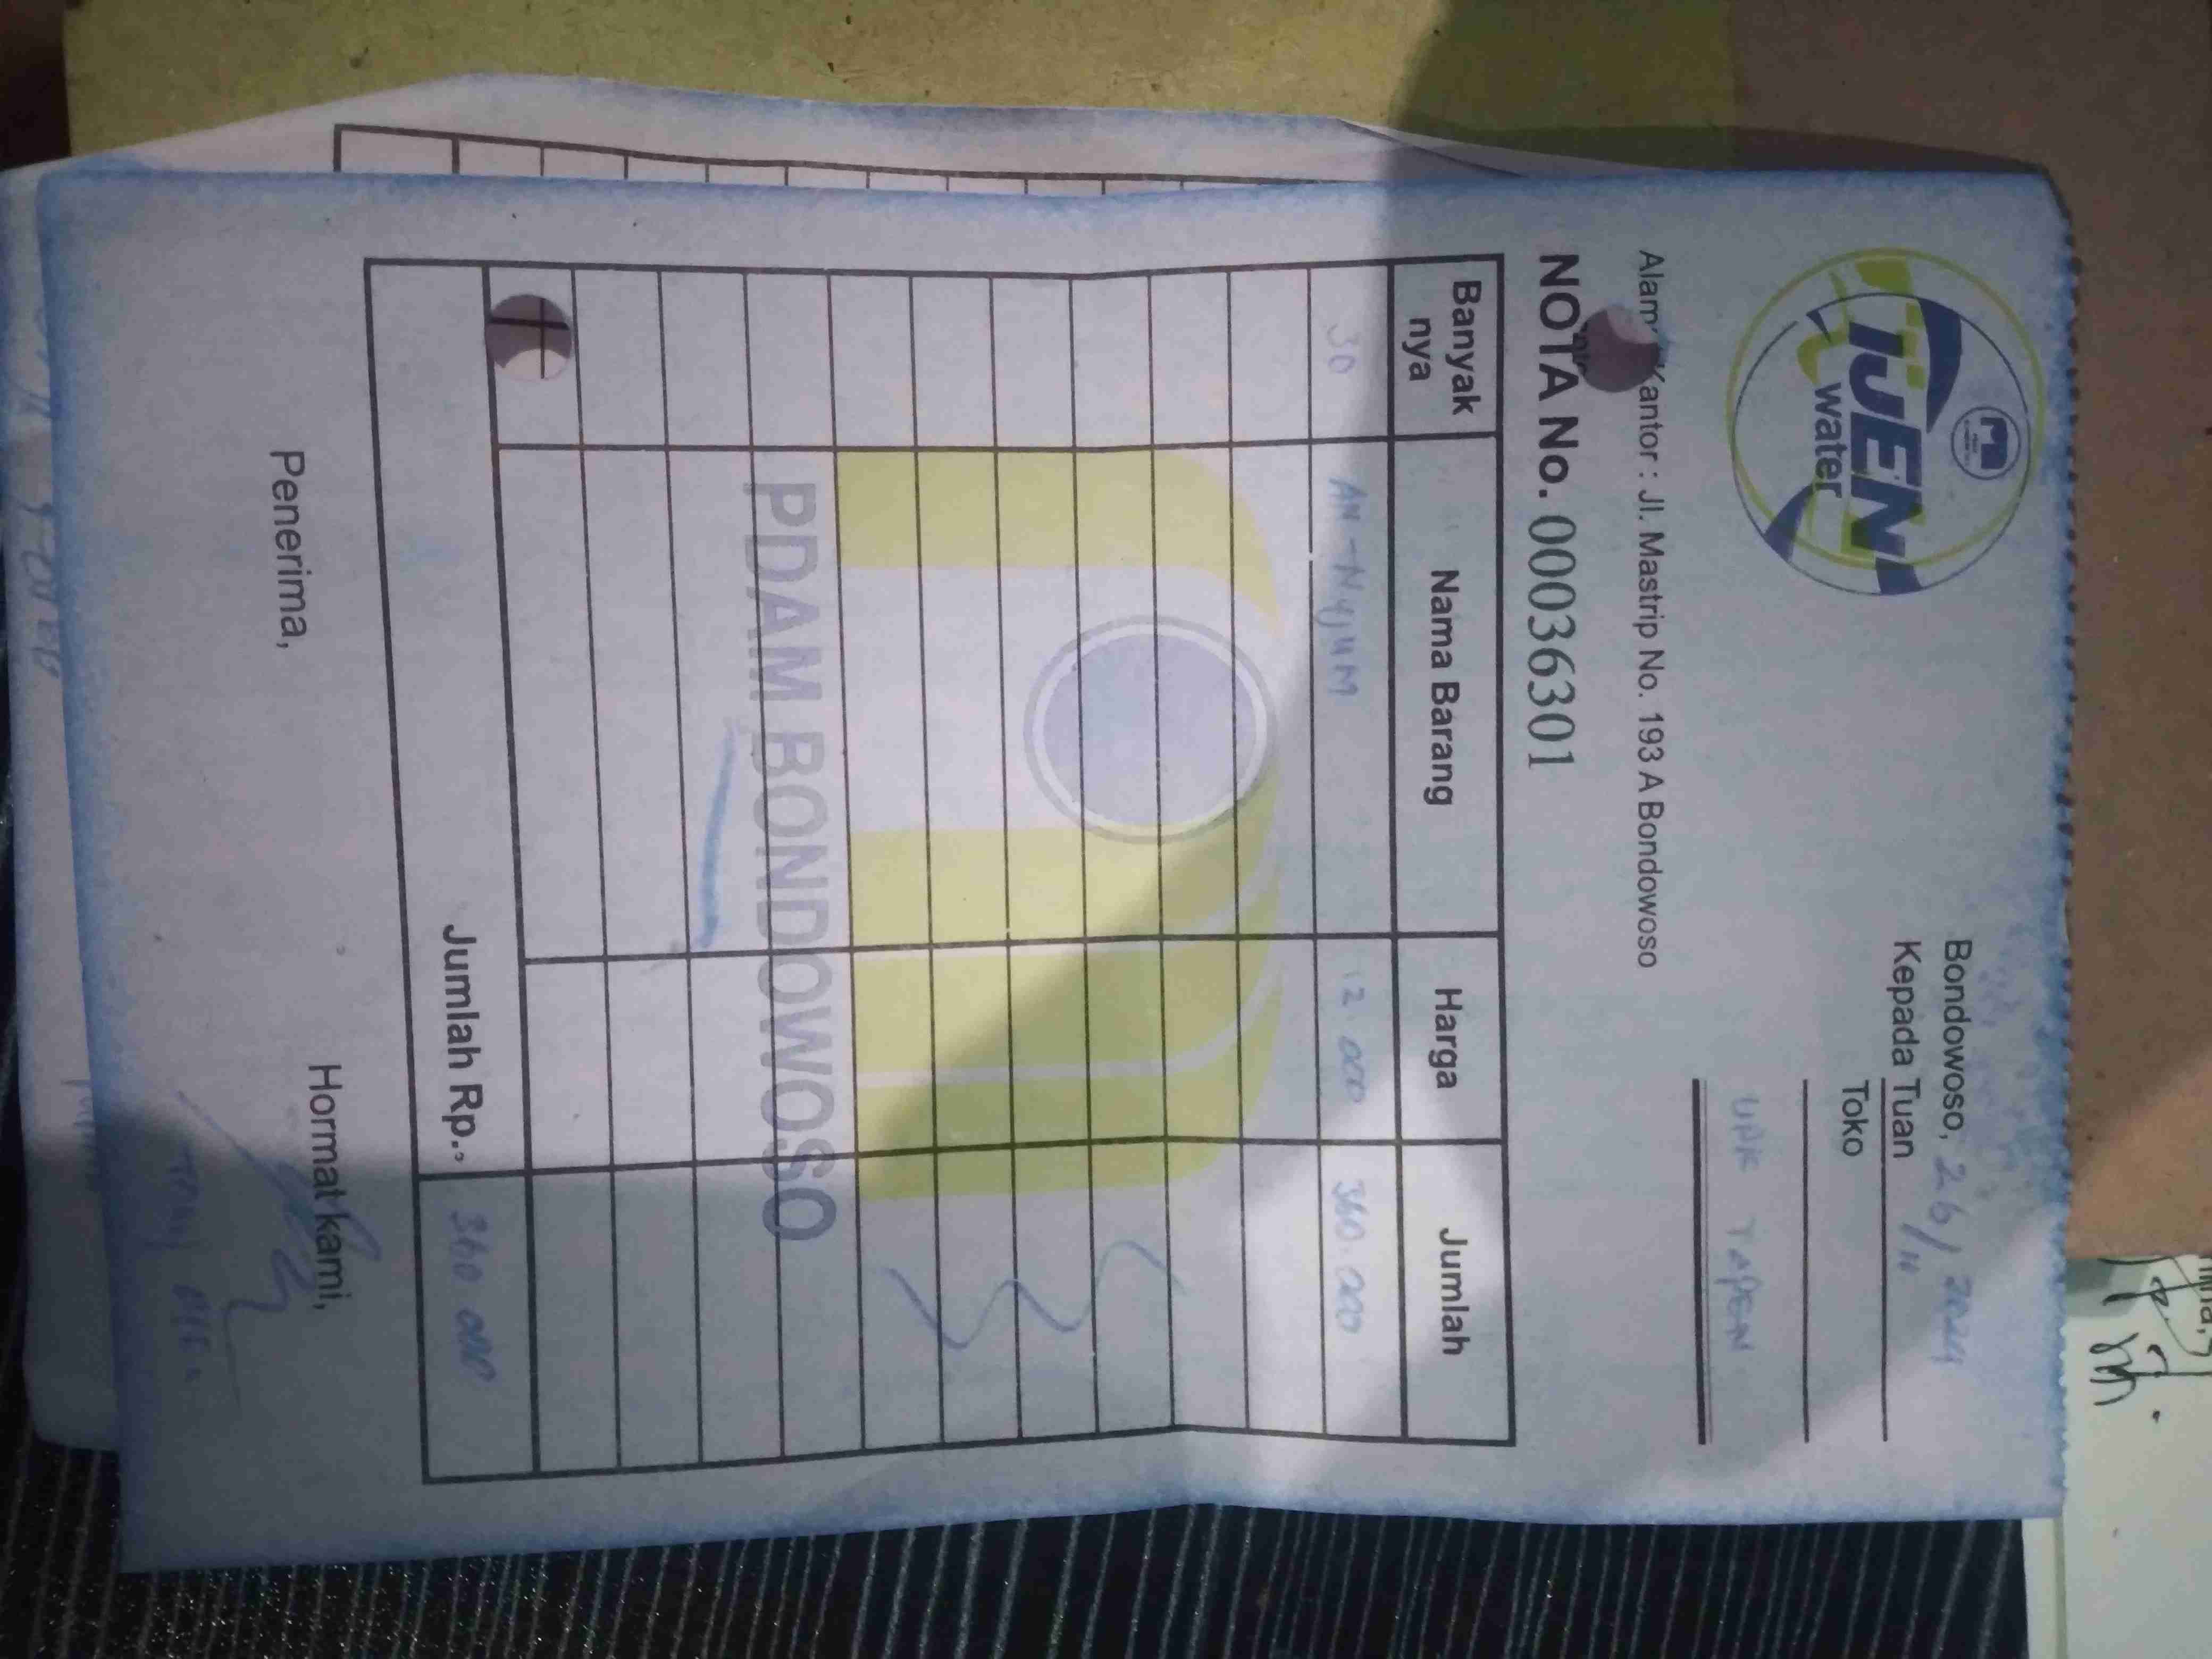 IJEN
water
Bondowoso, 26/11 2024
Kepada Tuan
Toko
UPK TAPEN
Kantor : Jl. Mastrip No. 193 A Bondowoso
NOTA No. 00036301
Banyak nya Nama Barang Harga Jumlah
30 AN-NUJUM 12.000 360.000
PDAM BONDOWOSO
Jumlah Rp. 360.000
Penerima, Hormat kami,